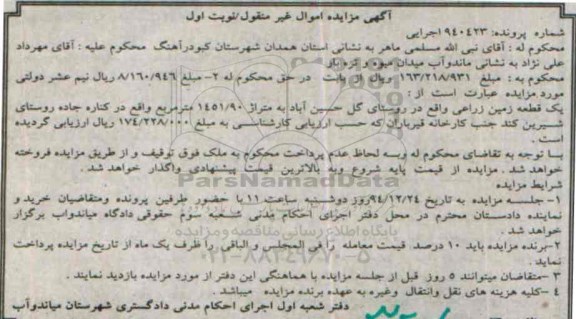 آگهی مزایده اموال غیر منقول/نوبت اول
شماره پرونده: ۹۴۰۴۲۳ اجرایی
محکوم له : آقای نبی الله مسلمی ماهر به نشانی استان همدان شهرستان کبودرآهنگ محکوم علیه : آقای مهرداد
علی نژاد به نشانی ماندوآب میدان میوه و تره بار
محکوم به : مبلغ ۱۶۳/۲۱۸/۹۳۱ ریال از بابت در حق محکوم له ۲- مبلغ ۸/۱۶۰/۹۴۶ ریال نیم عشر دولتی
مورد مزایده عبارت است از :
یک قطعه زمین زراعی واقع در روستای گل حسین آباد به متراژ ۱۴۵۱/۹۰ مترمربع واقع در کناره جاده روستای
شیرین کند جنب کارخانه قیرباران که حسب ارزیابی کارشناسی به مبلغ ۱۷۴/۲۲۸/۰۰۰ ریال ارزیابی گردیده
است .
با توجه به تقاضای محکوم له وبه لحاظ عدم پرداخت محکوم به ملک فوق توقیف و از طریق مزایده فروخته
خواهد شد . مزایده از قیمت پایه شروع وبه بالاترین قیمت پیشنهادی واگذار خواهد شد .
شرایط مزایده
۱- جلسه مزایده به تاریخ ۹۴/۱۲/۲۴ روز دوشنبه ساعت ۱۱ با حضور طرفین پرونده ومتقاضیان خرید و
نماینده دادستان محترم در محل دفتر اجرای احکام مدنی شعبه سوم حقوقی دادگاه میاندواب برگزار
خواهد شد .
۲-برنده مزایده باید ۱۰ درصد قیمت معامله را فی المجلس و الباقی را ظرف یک ماه از تاریخ مزایده پرداخت
نماید .
۳-متقاضان میتوانند ۵ روز قبل از جلسه مزایده با هماهنگی این دفتر از مورد مزایده بازدید نمایند .
۴-کلیه هزینه های نقل وانتقال وغیره به عهده برنده مزایده میباشد .
دفتر شعبه اول اجرای احکام مدنی دادگستری شهرستان میاندوآب
ParsNamadData
پایگاه اطلاع رسانی مناقصه و مزایده
۰۲۱-۸۸۳۴۹۶۷۰-۵